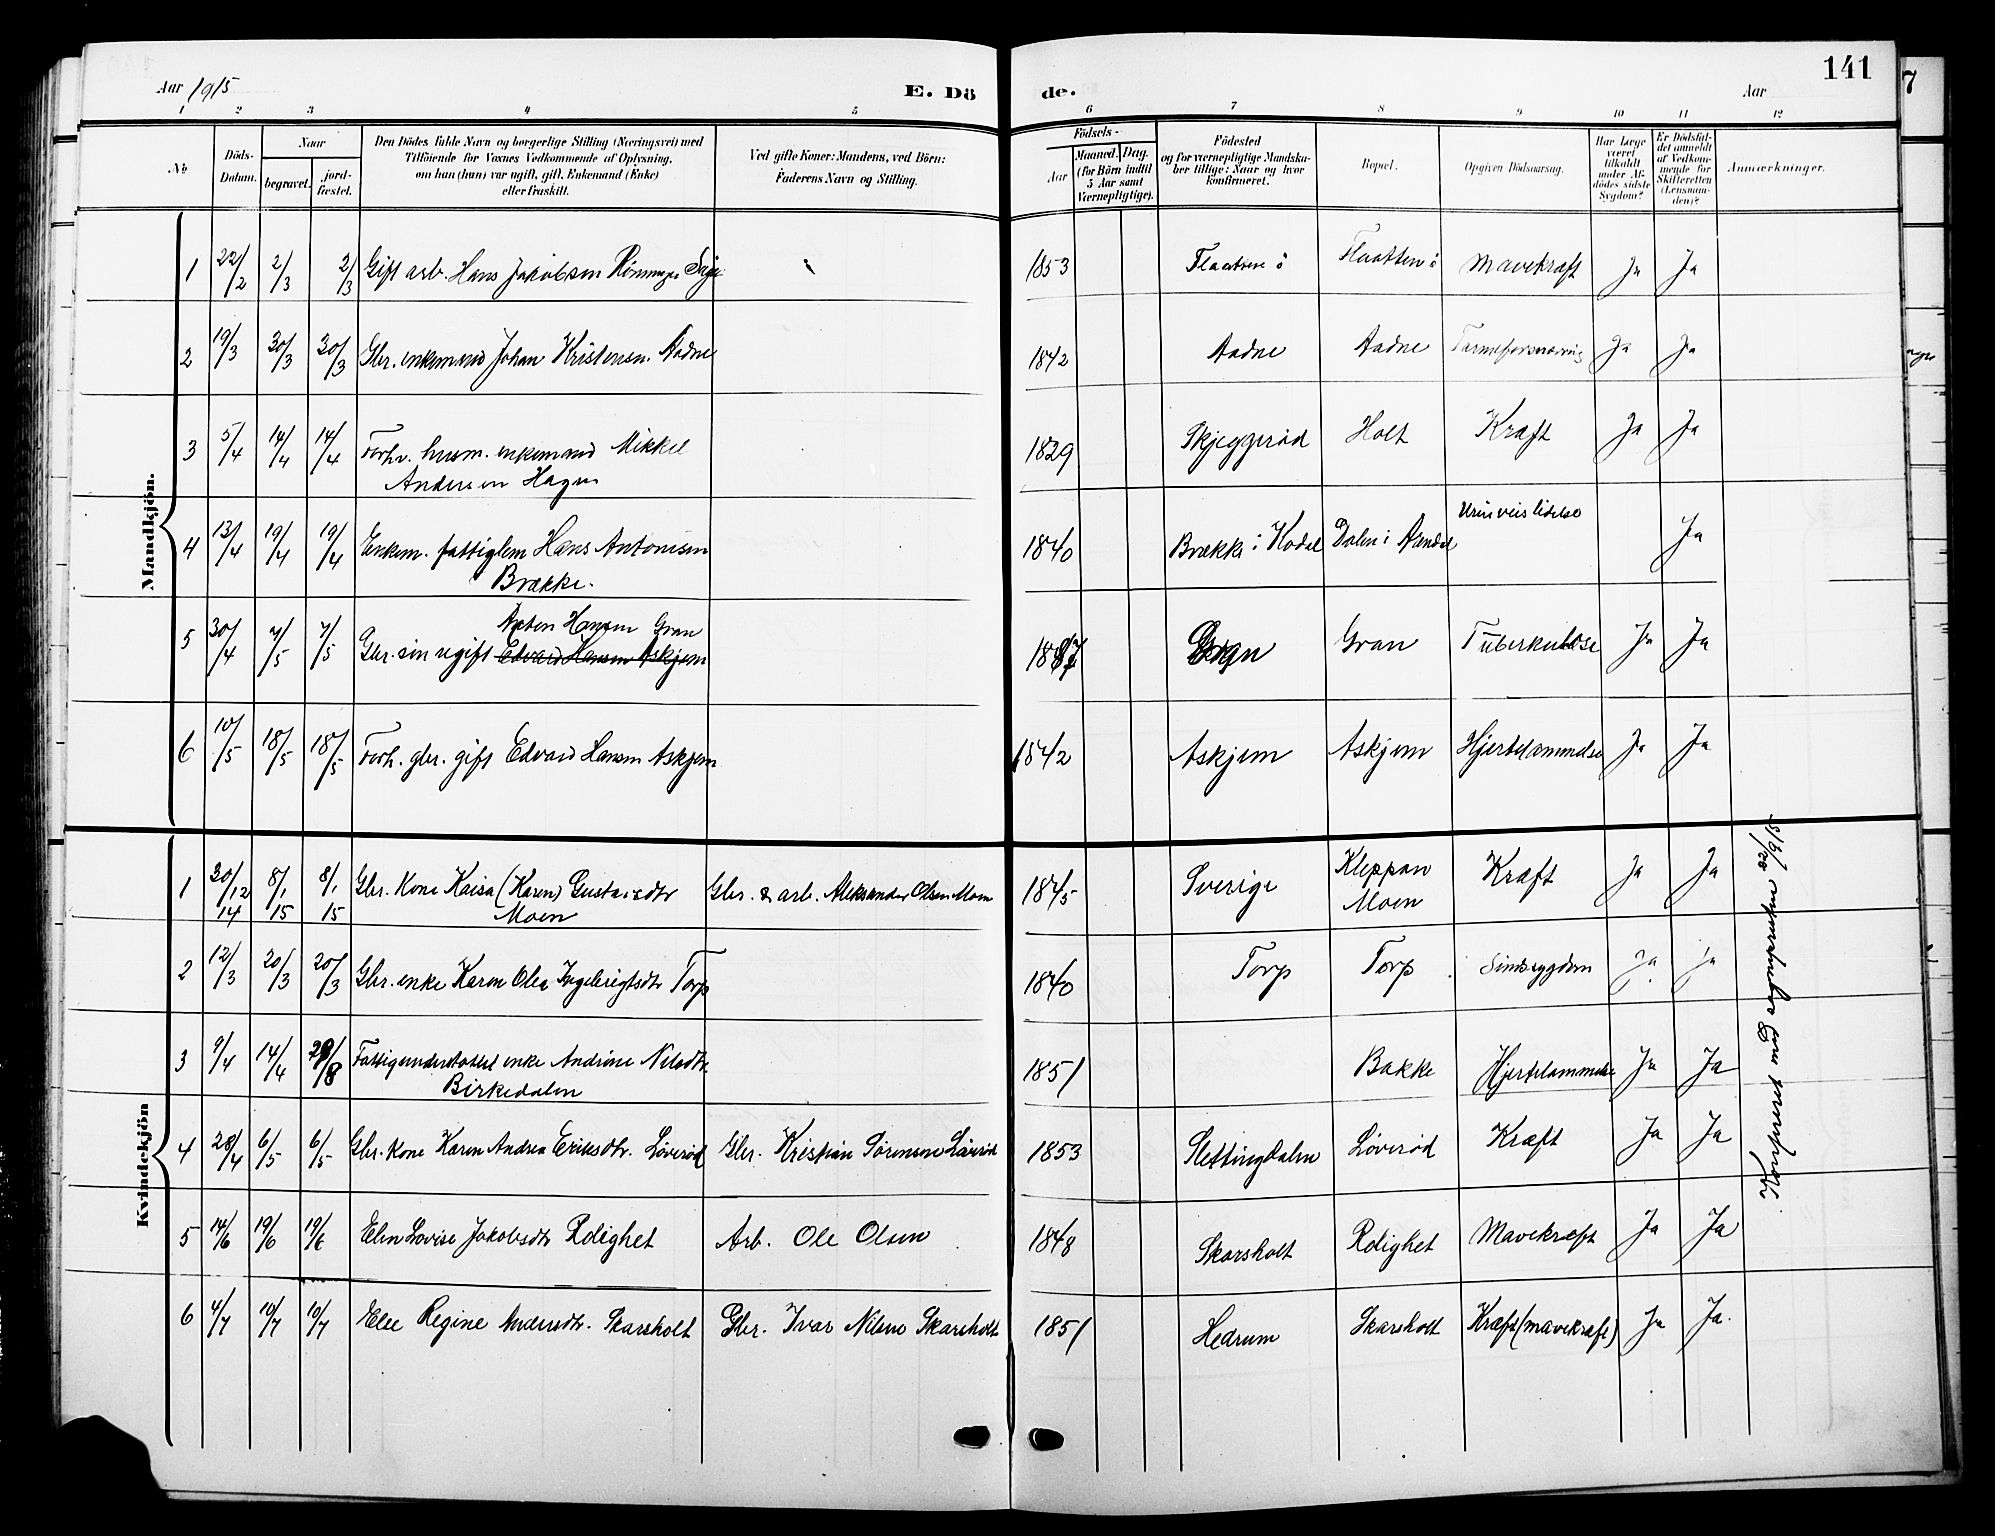 Aar 1915
E. Dö
de.
Aar
141
7
1 2 3 4 5 6 7 8 9 10 11 12
No
Döds-Datum.
Naar
begravet.
jord-fæstet.
Den Dödes fulde Navn og borgerlige Stilling (Næringsvei) med
Tilföiende for Voxnes Vedkommende af Oplysning,
om han (hun) var ugift, gift, Enkemand (Enke)
eller fraskilt.
Ved gifte Koner: Mandens, ved Börn:
Faderens Navn og Stilling.
Födsels-
Aar
Maaned. Dag.
(for Börn indtil
5 Aar samt
Værnepligtige).
Födested
og for værnepligtige Mandska-
ber tillige: Naar og hvor
konfirmeret.
Bopæl.
Opgiven Dödsaarsag.
Har Læge
været
tilkaldt
under Af-
dödes sidste
Sygdom?
Er Dödsfal-
det anmeldt
af Vedkom-
mende for
Skifteretten
(Lensman-
den)?
Anmærkninger.
Mandkjön.
1 22/2 2/3 2/3 Gift arb. Hans Jakobsen 1853 Flaatten ö Flaatten ö Mavekræft Ja Ja
2 19/3 30/3 30/3 Gbr. enkemand Johan Kristensen Aadne 1842 Aadne Aadne Ja Ja
3 5/4 14/4 14/4 Forhv. husm. enkemand Mikkel 1829 Skjeggerød Holt Kræft Ja Ja
Andersen Hagen
4 13/4 19/4 19/4 Enkem. fattiglem Hans Antonisen 1840 Brække i Kodal Dalen i Urinveislidelse Ja
Brække.
Anton Hansen Gran
5 30/4 7/5 7/5 Gbr. søn ugift Edvard Hansen Askjem 1887 Gran Gran Tuberkulose Ja Ja
6 10/5 18/5 18/5 Forh. gbr. gift Edvard Hansen Askjem 1842 Askjem Askjem Hjertelammelse Ja Ja
Kvindekjön
1 30/12 14 8/1 15 8/1 15 Gbr. Kone Kaisa (Karen) Gustavsdtr Gbr. & arb. Aleksander Olsen Moen 1845 Sverige Kleppan Kræft Ja Ja
Moen Moen
2 12/3 20/3 20/3 Gbr. enke Karen Olea Ingebrigtsdtr Torp 1840 Torp Torp Sindssygdom Ja Ja
3 9/4 14/4 29/8 Fattigunderstøttet enke Andrine Nilsdtr. 1851 Bakke Hjertelammelse Ja Ja
Birkedalen
4 28/4 6/5 6/5 Gbr. Kone Karen Andrea Eriksdtr. Løverød Gbr. Kristian Sørensen Løverød 1853 Slettingdalen Løverød Kræft Ja Ja
5 14/6 19/6 19/6 Elen Lovise Jakobsdtr Rolighet Arb. Ole Olsen 1848 Skarsholt Rolighet Mavekræft Ja Ja
6 4/7 10/7 10/7 Else Regine Andersdtr. Skarsholt Gbr. Ivar Nilsen Skarsholt 1851 Hedrum Skarsholt Kræft (mavekræft) Ja Ja.
Konfereret med sognepresten 1915